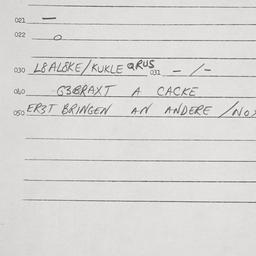 021 —
022 o
030 L8AL8KE/KUKLE QRUS 031 - /-
040 G3BRAXT A CACKE
050 ER3T BRINGEN AN ANDERE /NO